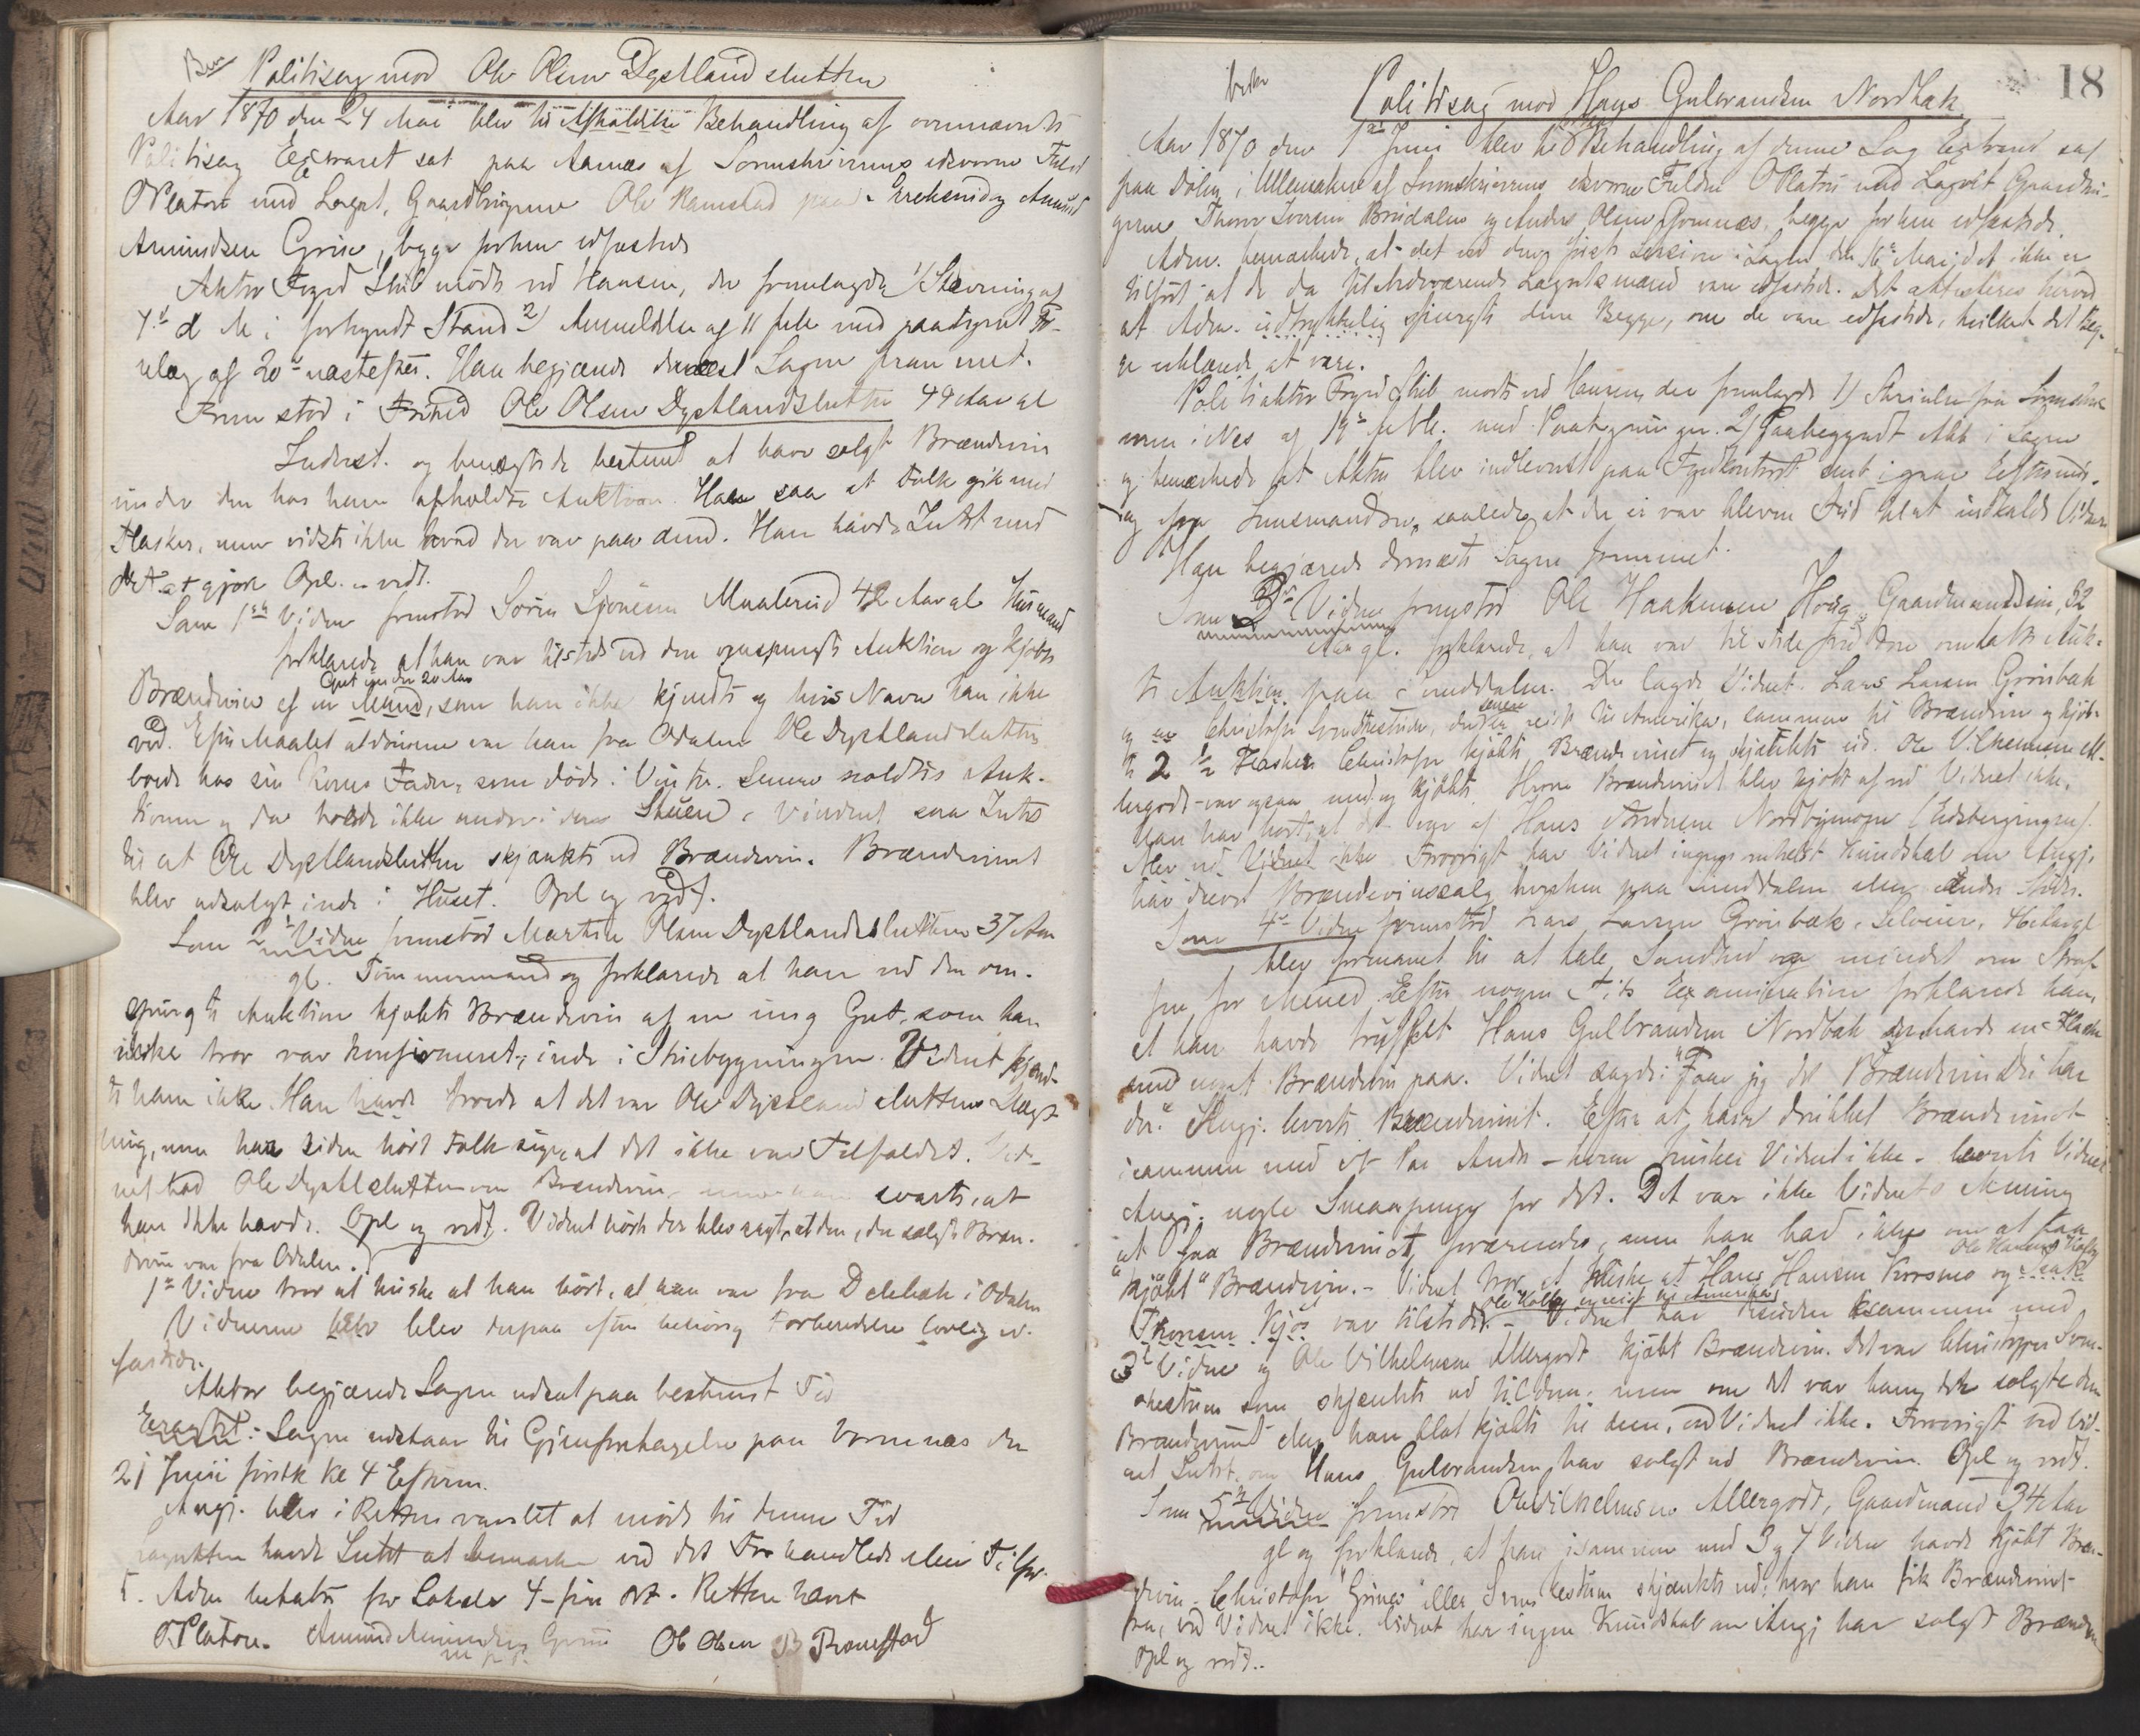 Politisag mod Ole Olsen Dystlandslutten
Aar 1870 den 24 Mai blev til Behandling af ovennævnte
Politisag Extraret sat paa Aarnæs af Sorenskriverens edsvorne Fuldm
O Platou med Lagret, Gaardbrugerne Ole Ramstad Amund
Amundsen Grine, begge forhen edfæstede
Aktor Foged Stib mødte ved Hansen, der fremlagde 1) Stævning af
7de d M i forkyndt Stand 2) Anmeldelse af 11 febr med paategnet
af 20de næstefter. Han begjærede dernæst Sagen fremmet.
Frem stod i Frihed Ole Olsen Dystlandslutten 49 Aar gl
Inderst. og benægtede bestemt at have solgt Brændevin
under den hos ham afholdte Auktion. Han saa at Folk gik med
Flasker, men vidste ikke hvad der var paa dem. Han havde Intet med
det at gjøre Opl. og vedt.
Som 1ste Vidne fremstod Søren Maalerud 42 Aar gl Husmand
forklarede at han var tilstede ved den omspurgte Auktion og kjøbte
Gut under 20 Aar
Brændevin af en Mand, som han ikke kjendte og hvis Navn han ikke
ved. Efter Maalet at dømme var han fra Odalen Ole Dystlandslutten
boede hos sin Kones Fader, som døde i Vinter. Senere holdtes Auk-
tionen og da boede ikke andre i den Stuen. Vidnet saa Intet
til at Ole Dystlandslutten skjænkte ud Brændevin. Brændevinet
blev udsolgt inde i Huset. Opl og vedt.
Som 2det Vidne fremstod Martin Olsen Dystlandslutten 37 Aar
gl. Tømmermand og forklarede at han ved den om-
spurgte Auktion kjøbte Brændevin af en ung Gut, som han
ikke tror var konfirmeret, inde i Stuebygningen. Vidnet kjend-
te ham ikke. Han havde troede at det var Ole Dystlandsluttens Slægt-
ning, men har siden hørt Folk sige, at det ikke var Tilfældet. Vid-
net bad Ole Dystlslutten om Brændevin, men han svarte, at
han ikke havde. Opl og vedt. Vidnet hørte der blev sagt, at den, der solgte Bræn-
devin var fra Odalen.
1ste Vidne tror at huske at han hørte, at han var fra i Odalen
Vidnerne blev derpaa efter behørig Forberedelse lovlig ed-
fæstede.
Aktor begjærede Sagen udsat paa bestemt Tid
Eragtet: Sagen udstaar til Gjenforetagelse paa Vormnæs den
21 Juni førstk Kl 4 Efterm.
Angj. blev i Retten varslet at møde til denne Tid
Lagretten havde Intet at bemærke ved det Forhandlede eller Tilfør-
te. Adm betalte for Lokale 4 - fire Ort. Retten hævet
O. Platou. Amund Amundsen Grine Ole Olsen Ramstad
m. p. P.
18
Politisag mod Hans Gulbrandsen Nordbæk
Aar 1870 den 1ste Juni blev til Behandling af denne Sag Extraret sat
paa Dølin i Ullensaker af Sorenskriverens edsvorne Fuldm O Platou med Lagret Gaardbru-
gerne Thorer Iversen Brudalen og Anders Olsen Gomnæs, begge forhen edfæstede.
Adm. bemærkede, at det ved den første Session i Sagen den 16de Mai, det ikke er
tilført at de da tilstedeværende Lagrettesmænd vare edfæstede. Det attesteres herved
at Adm. udtrykkelig spurgte dem Begge, om de vare edfæstede, hvilket det Beg-
ge erklærede at være.
Politiaktor Foged Stib mødte ved Hansen, der fremlagde 1) Skrivelse fra Lensman-
nen i Nes af 19de febr. med Paategninger. 2) Paabegyndt Akt i Sagen
og bemærkede at Akten blev indleveret paa Fogedkontoret sent igaar Eftermid-
dag fra Lensmanden, saaledes at der ei var bleven Tid til at indkalde Vidner
Han begjærede dernæst Sagen fremmet.
Som 3die Vidne fremstod Ole Haakensen Haug, Gaardmandssøn, 32
Aar gl. forklarede, at han var tilstede ved den omtalte Auk-
tion paa Smeddalen. Der lagde Vidnet Lars Larsen Grønbæk
og Christofer der senere er reist til Amerika, sammen til Brændevin og kjøb-
te 2 1/2 Flasker. Christofer kjøbte Brændevinet og skjænkte ud. Ole Vilhelmsen Al-
lergodt var ogsaa med og kjøbte. Hvem Brændevinet blev kjøbt af ved Vidnet ikke,
han har hørt, at det var af Hans Andersen Nordbymoen (Eidsbergingen).
Mer ved Vidnet ikke. Forøvrigt har Vidnet ingensomhelst Kundskab om Angj.
har drevet Brændevinssalg hverken paa Smeddalen eller andre Steder.
Som 4de Vidne fremstod Lars Larsen Grønbæk, Selveier, 46 Aar gl
blev formanet til at tale Sandhed og mindet om Straf-
fen for Mened. Efter nogen Tids Examination forklarede han,
at han havde truffet Hans Gulbrandsen Nordbæk der havde en Flaske
med noget Brændevin paa. Vidnet sagde: "Faar jeg det Brændevin De har
der." Angj. leverte Brændevinet. Efter at have drukket Brændevinet
isammen med et Par Andre - hvem husker Vidnet ikke - leverte Vidnet
Angj. nogle Smaapenge for det. Det var ikke Vidnets Mening
at faa Brændevinet forærendes, men han bad ikke om at faa
"kjøbt" Brændevin. - Vidnet tror at huske at Hans Hansen Korsmo og
Thorsen Kjøs var tilstede. - Vidnet har desuden isammen med
3die Vidne og Ole Vilhelmsen Allergodt kjøbt Brændevin. Det var Christoffer
som skjænkte ud til dem, men om det var ham, der solgte dem
Brændevinet eller han blot kjøbte til dem, ved Vidnet ikke. Forøvrigt ved Vid-
net Intet om Hans Gulbrandsen har solgt ud Brændevin. Opl og vedt.
Som 5te Vidne fremstod Ole Vilhelmsen Allergodt, Gaardmand 34 Aar
gl og forklarede, at han isammen med 3 og 4 Vidne havde kjøbt Bræn-
devin. Christofer Grines eller skjænkte ud; hvor han fik Brændevinet
fra, ved Vidnet ikke. Vidnet har ingen Kundskab om Angj har solgt Brændevin
Opl og vedt.